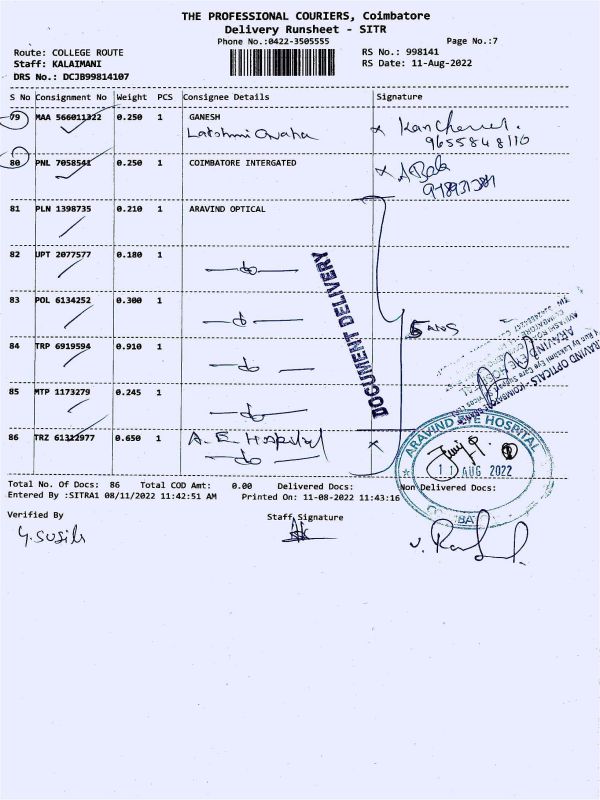 THE PROFESSIONAL COURIERS, Coimbatore
Delivery Runsheet - SITR
Phone No.:0422-3505555 Page No.:7
Route: COLLEGE ROUTE RS No.: 998141
Staff: KALAIMANI RS Date: 11-Aug-2022
DRS No.: DCJB99814107
S No Consignment No Weight PCS Consignee Details Signature
79 MAA 566011322 0.250 1 GANESH
9655848110
80 PNL 7058541 0.250 1 COIMBATORE INTERGATED
81 PLN 1398735 0.210 1 ARAVIND OPTICAL
82 UPT 2077577 0.180 1 do
83 POL 6134252 0.300 1 do
84 TRP 6919594 0.910 1 do
85 MTP 1173279 0.245 1 do
86 TRZ 61322977 0.650 1 A. E Hospital
do
DOCUMENT DELIVERY
5
ARAVIND EYE HOSPITAL
11 AUG 2022
Total No. Of Docs: 86 Total COD Amt: 0.00 Delivered Docs: Non Delivered Docs:
Entered By :SITRA1 08/11/2022 11:42:51 AM Printed On: 11-08-2022 11:43:16
Verified By Staff Signature